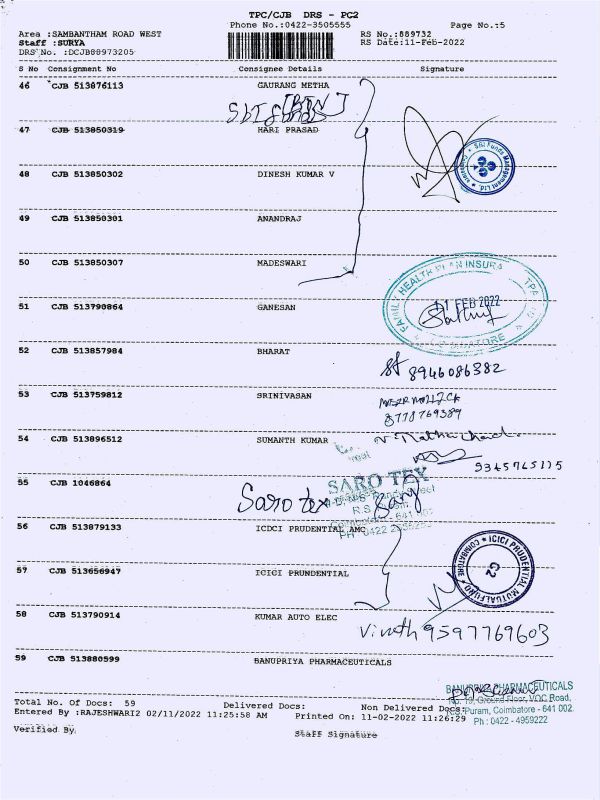 TPC/CJB DRS - PC2
Phone No.:0422-3505555 Page No.:5
Area :SAMBANTHAM ROAD WEST RS No.:889732
Staff :SURYA RS Date:11-Feb-2022
DRS No. :DCJB88973205
S No Consignment No Consignee Details Signature
46 CJB 513876113 GAURANG METHA
SBI Funds
47 CJB 513850319 HARI PRASAD
SBI Funds Management Ltd.
48 CJB 513850302 DINESH KUMAR V
49 CJB 513850301 ANANDRAJ
50 CJB 513850307 MADESWARI
FAMILY HEALTH PLAN INSURA TPA
51 CJB 513790864 GANESAN
11 FEB 2022
52 CJB 513857984 BHARAT
8946086382
53 CJB 513759812 SRINIVASAN
8778769389
54 CJB 513896512 SUMANTH KUMAR
9345765115
55 CJB 1046864
SARO TEX
Saro tex
R.S.
PH: 0422
56 CJB 513879133 ICDCI PRUDENTIAL AMC
ICICI PRUDENTIAL MUTUAL FUND COIMBATORE C2
57 CJB 513656947 ICICI PRUNDENTIAL
58 CJB 513790914 KUMAR AUTO ELEC
Vinoth 9597769603
59 CJB 513880599 BANUPRIYA PHARMACEUTICALS
BANUPRIYA PHARMACEUTICALS
No. 19, Ground Floor, VOC Road,
R.S. Puram, Coimbatore - 641 002.
Ph : 0422 - 4959222
Total No. Of Docs: 59 Delivered Docs: Non Delivered Docs:
Entered By :RAJESHWARI2 02/11/2022 11:25:58 AM Printed On: 11-02-2022 11:26:29
Verified By Staff Signature